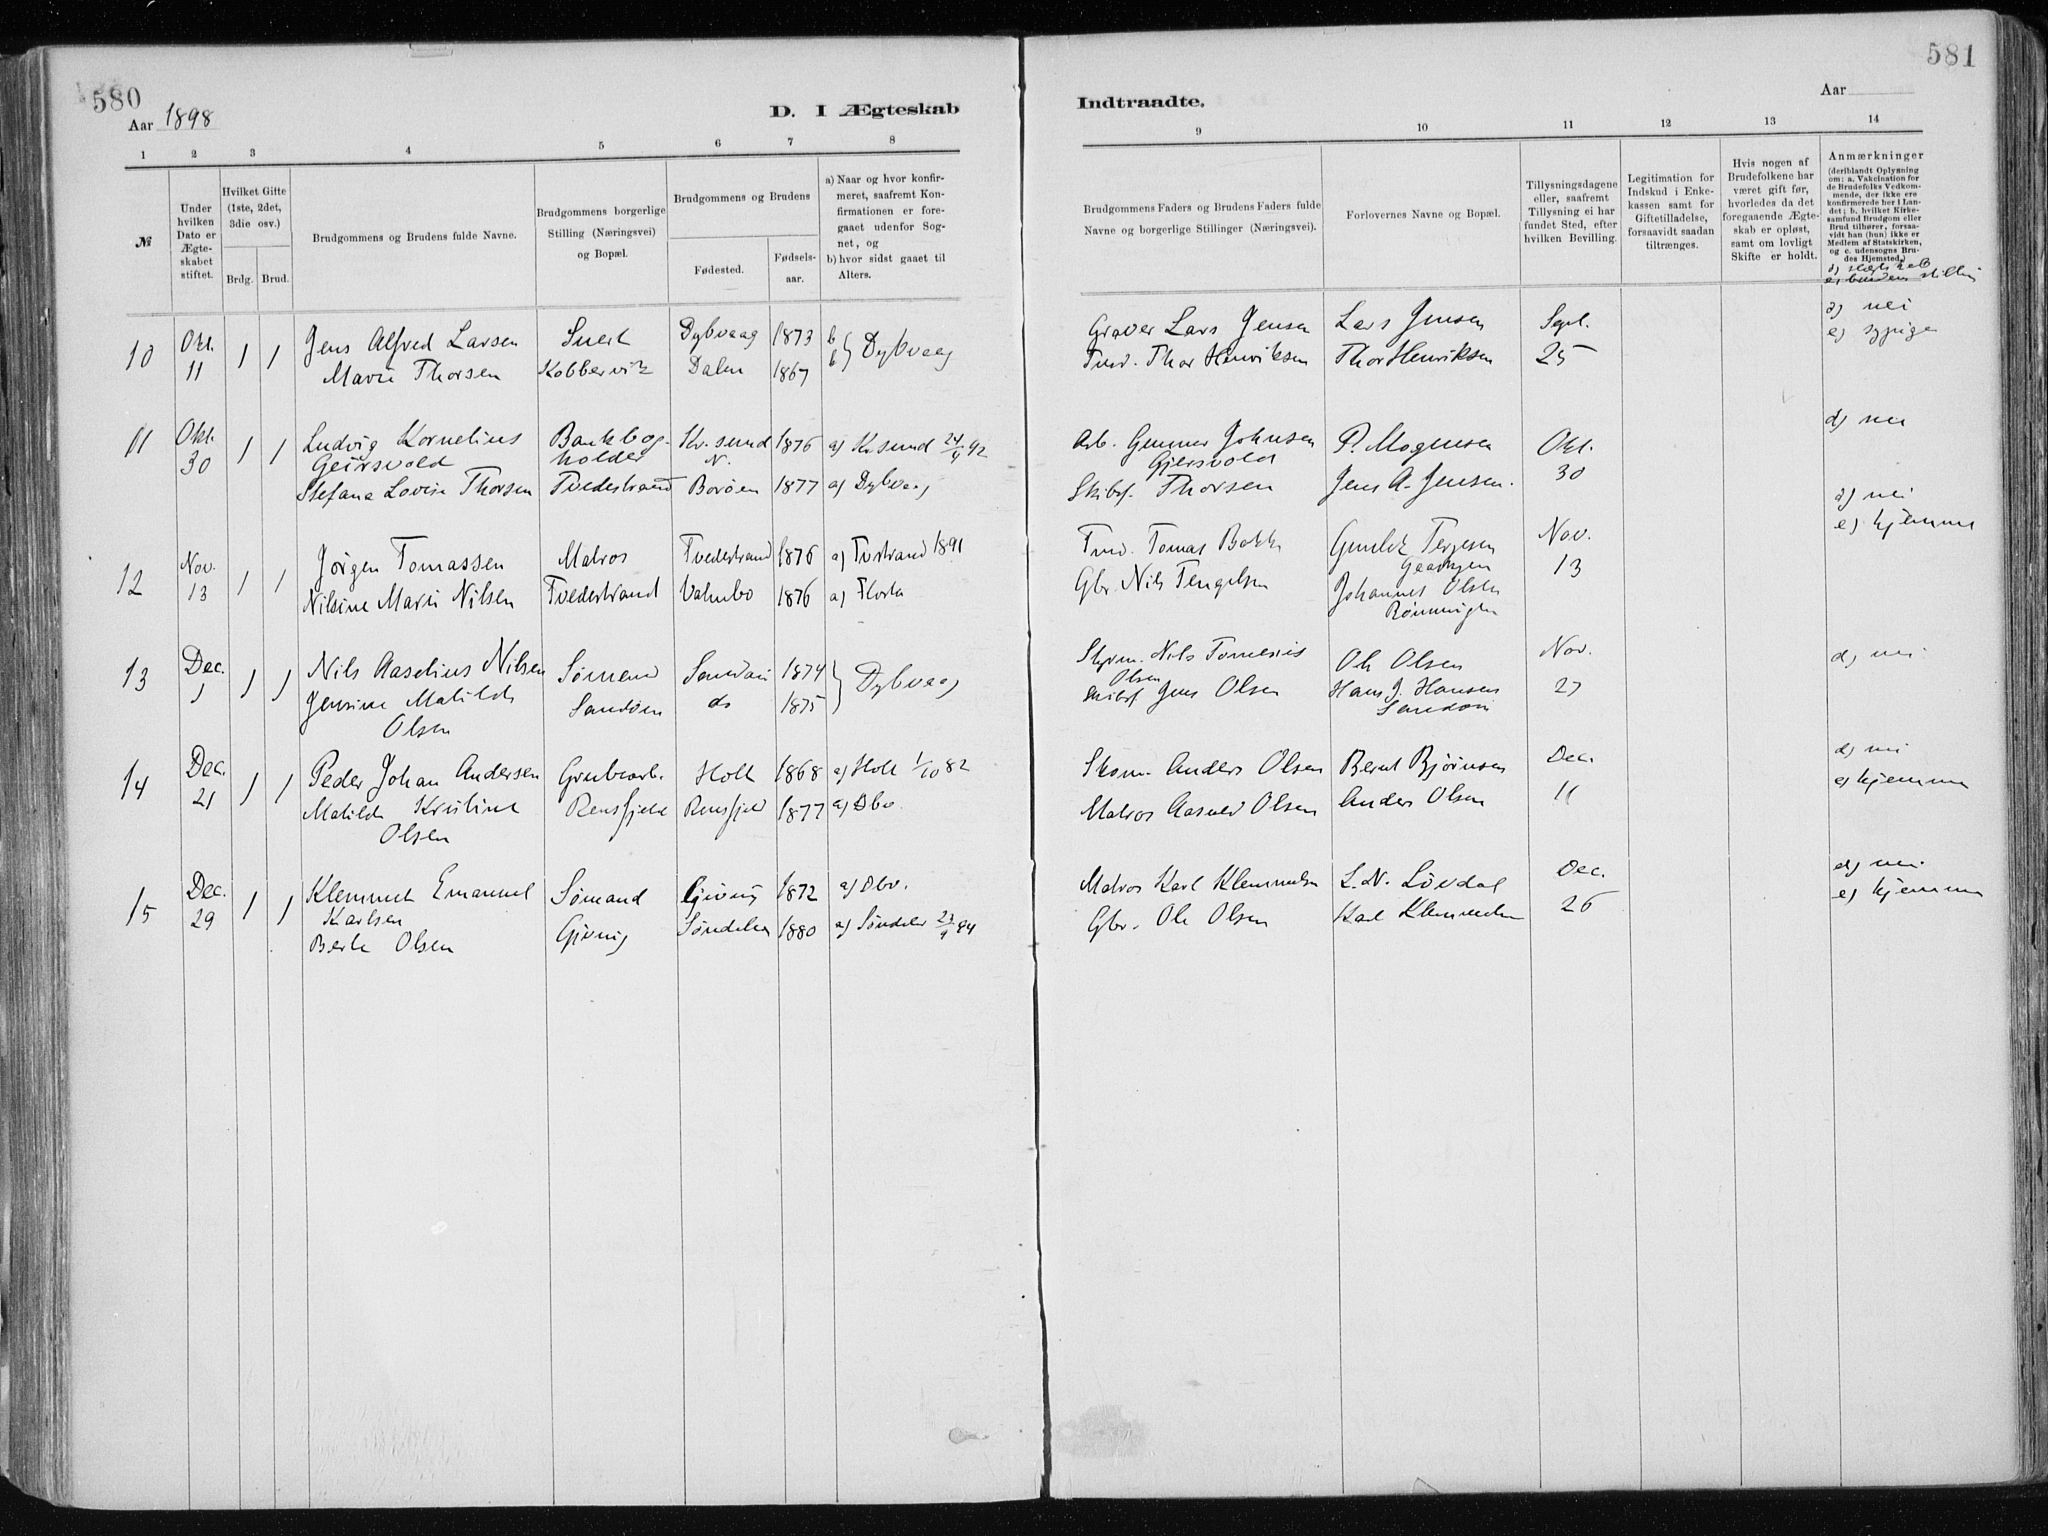 580
581
Aar 1898
D. I Ægteskab
Indtraadte.
Aar
1 2 3 4 5 6 7 8 9 10 11 12 13 14
№
Under hvilken Dato er Ægteskabet stiftet.
Hvilket Gifte (1ste, 2det, 3die osv.)
Brdg. Brud.
Brudgommens og Brudens fulde Navne.
Brudgommens borgerlige Stilling (Næringsvei) og Bopæl.
Brudgommens og Brudens
Fødested.
Fødselsaar.
a) Naar og hvor konfirmeret, saafremt Konfirmationen er foregaaet udenfor Sognet, og
b) hvor sidst gaaet til Alters.
Brudgommens Faders og Brudens Faders fulde Navne og borgerlige Stillinger (Næringsvei).
Forlovernes Navne og Bopæl.
Tillysningsdagene eller, saafremt Tillysning ei har fundet Sted, efter hvilken Bevilling.
Legitimation for Indskud i Enkekassen samt for Giftetilladelse, forsaavidt saadan tiltrænges.
Hvis nogen af Brudefolkene har været gift før, hvorledes da det foregaaende Ægteskab er opløst, samt om lovligt Skifte er holdt.
Anmærkninger (deriblandt Oplysning om: a. Vakcination for de Brudefolks Vedkommende, der ikke ere konfirmerede her i Landet; b. hvilket Kirkesamfund Brudgom eller Brud tilhører, forsaavidt han (hun) ikke er Medlem af Statskirken, og c. udensogns Brudes Hjemsted.)
e) brudens stilling
10 Okt. 1 1 Jens Alfred Larsen Dybvaag 1873 b Graver Lars Jensen Lars Jensen Sept. d) nei
11 Marie Thorsen Kobbervik Dalen 1867 b} Dybvaag Thor Henriksen Thor Henriksen 25 e) sypige
11 Okt. 1 1 Ludvig Kornelius Bankbog- Kr.sund 1876 a) Kr.sund 24/9 92 Arb. Gunner Johnsen P. Mogensen Okt. d) nei
30 Geirsvold holder N. Gjersvold 30
Stefana Lovise Thorsen Tvedestrand Borøen 1877 a) Dybvaag Skibsf. Thorsen Jens A. Jensen.
12 Nov. 1 1 Jørgen Tomassen Matros Tvedestrand 1876 a) Tvstrand 1891 Tomas Bakke Terjesen Nov. d) nei
13 Nilsine Marie Nilsen Tvedestrand 1876 a) Flosta Gbr. Nils Tengelsen Johannes Olsen 13 e) hjemme
13 Dec. 1 1 Nils Aaselius Nilsen Sømand Sandøen 1874 } Dybvaag Styrm. Nils Ole Olsen Nov. d) nei
1 Jensine Matilde Sandøen do 1875 Olsen Hans J. Hansen 27
Olsen Skibsf. Jens Olsen Sandøen
14 Dec. 1 1 Peder Johan Andersen Grubearb. Holt 1868 a) Holt 1/10 82 Skom. Anders Olsen Bernt Bjørnsen Dec. d) nei
21 Matilde Kristine Rensfjeld Rensfjeld 1877 a) Dbv. Matros Aasuld Olsen Anders Olsen 11 e) hjemme
Olsen
15 Dec. 1 1 Klemmet Emanuel Sømand Gjeving 1872 a) Dbv. Matros Karl Klemmetsen L. N. Løvdal Dec. d) nei
29 Karlsen Gjeving Søndeler 1880 a) Søndeler 23/9 94 Gbr. Ole Olsen Karl Klemmetsen 26 e) hjemme
Berte Olsen